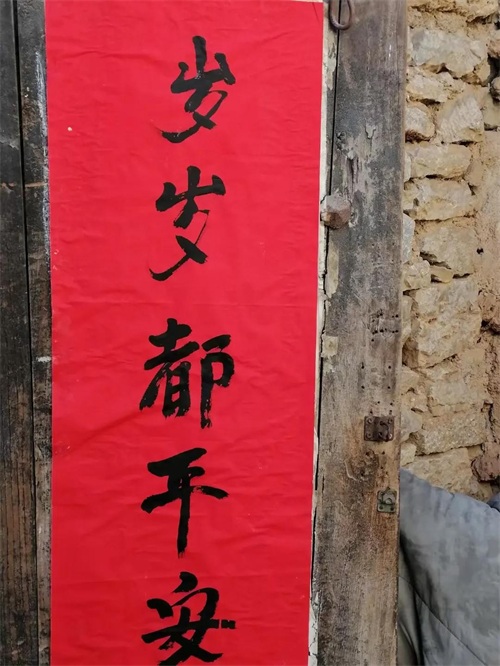 岁岁都平安